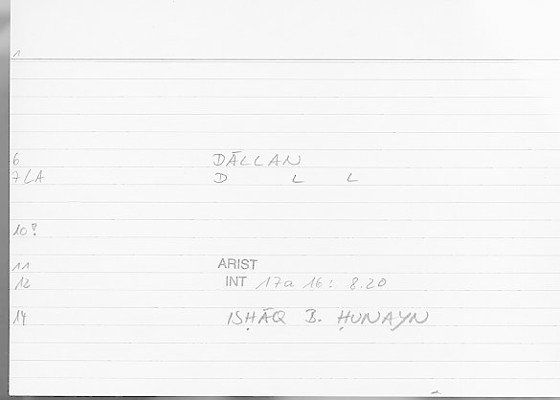 1
6 DĀLLAN
7 LA D L L
10?
11 ARIST
12 INT 17a 16: 8.20
14 ISḤĀQ B. ḤUNAYN